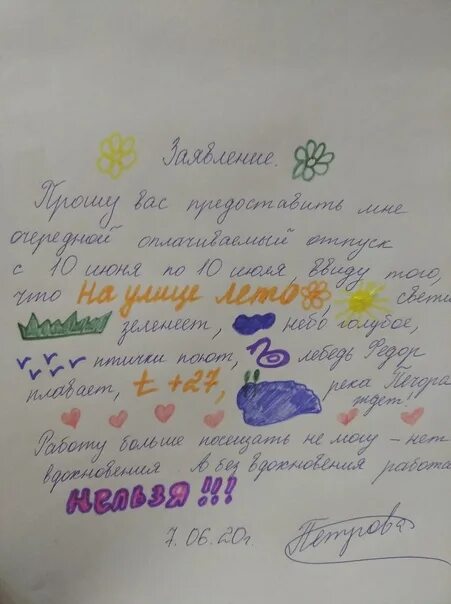 Заявление.
Прошу вас предоставить мне
очередной оплачиваемый отпуск
с 10 июня по 10 июля, ввиду того,
что на улице лето, свети
зеленеет, небо голубое,
птички поют, лебедь Федор
плавает, t +27, река Печора
ждет,
Работу больше посещать не могу - нет
вдохновения. А без вдохновения работа
НЕЛЬЗЯ!!!
7.06.20г. Петрова